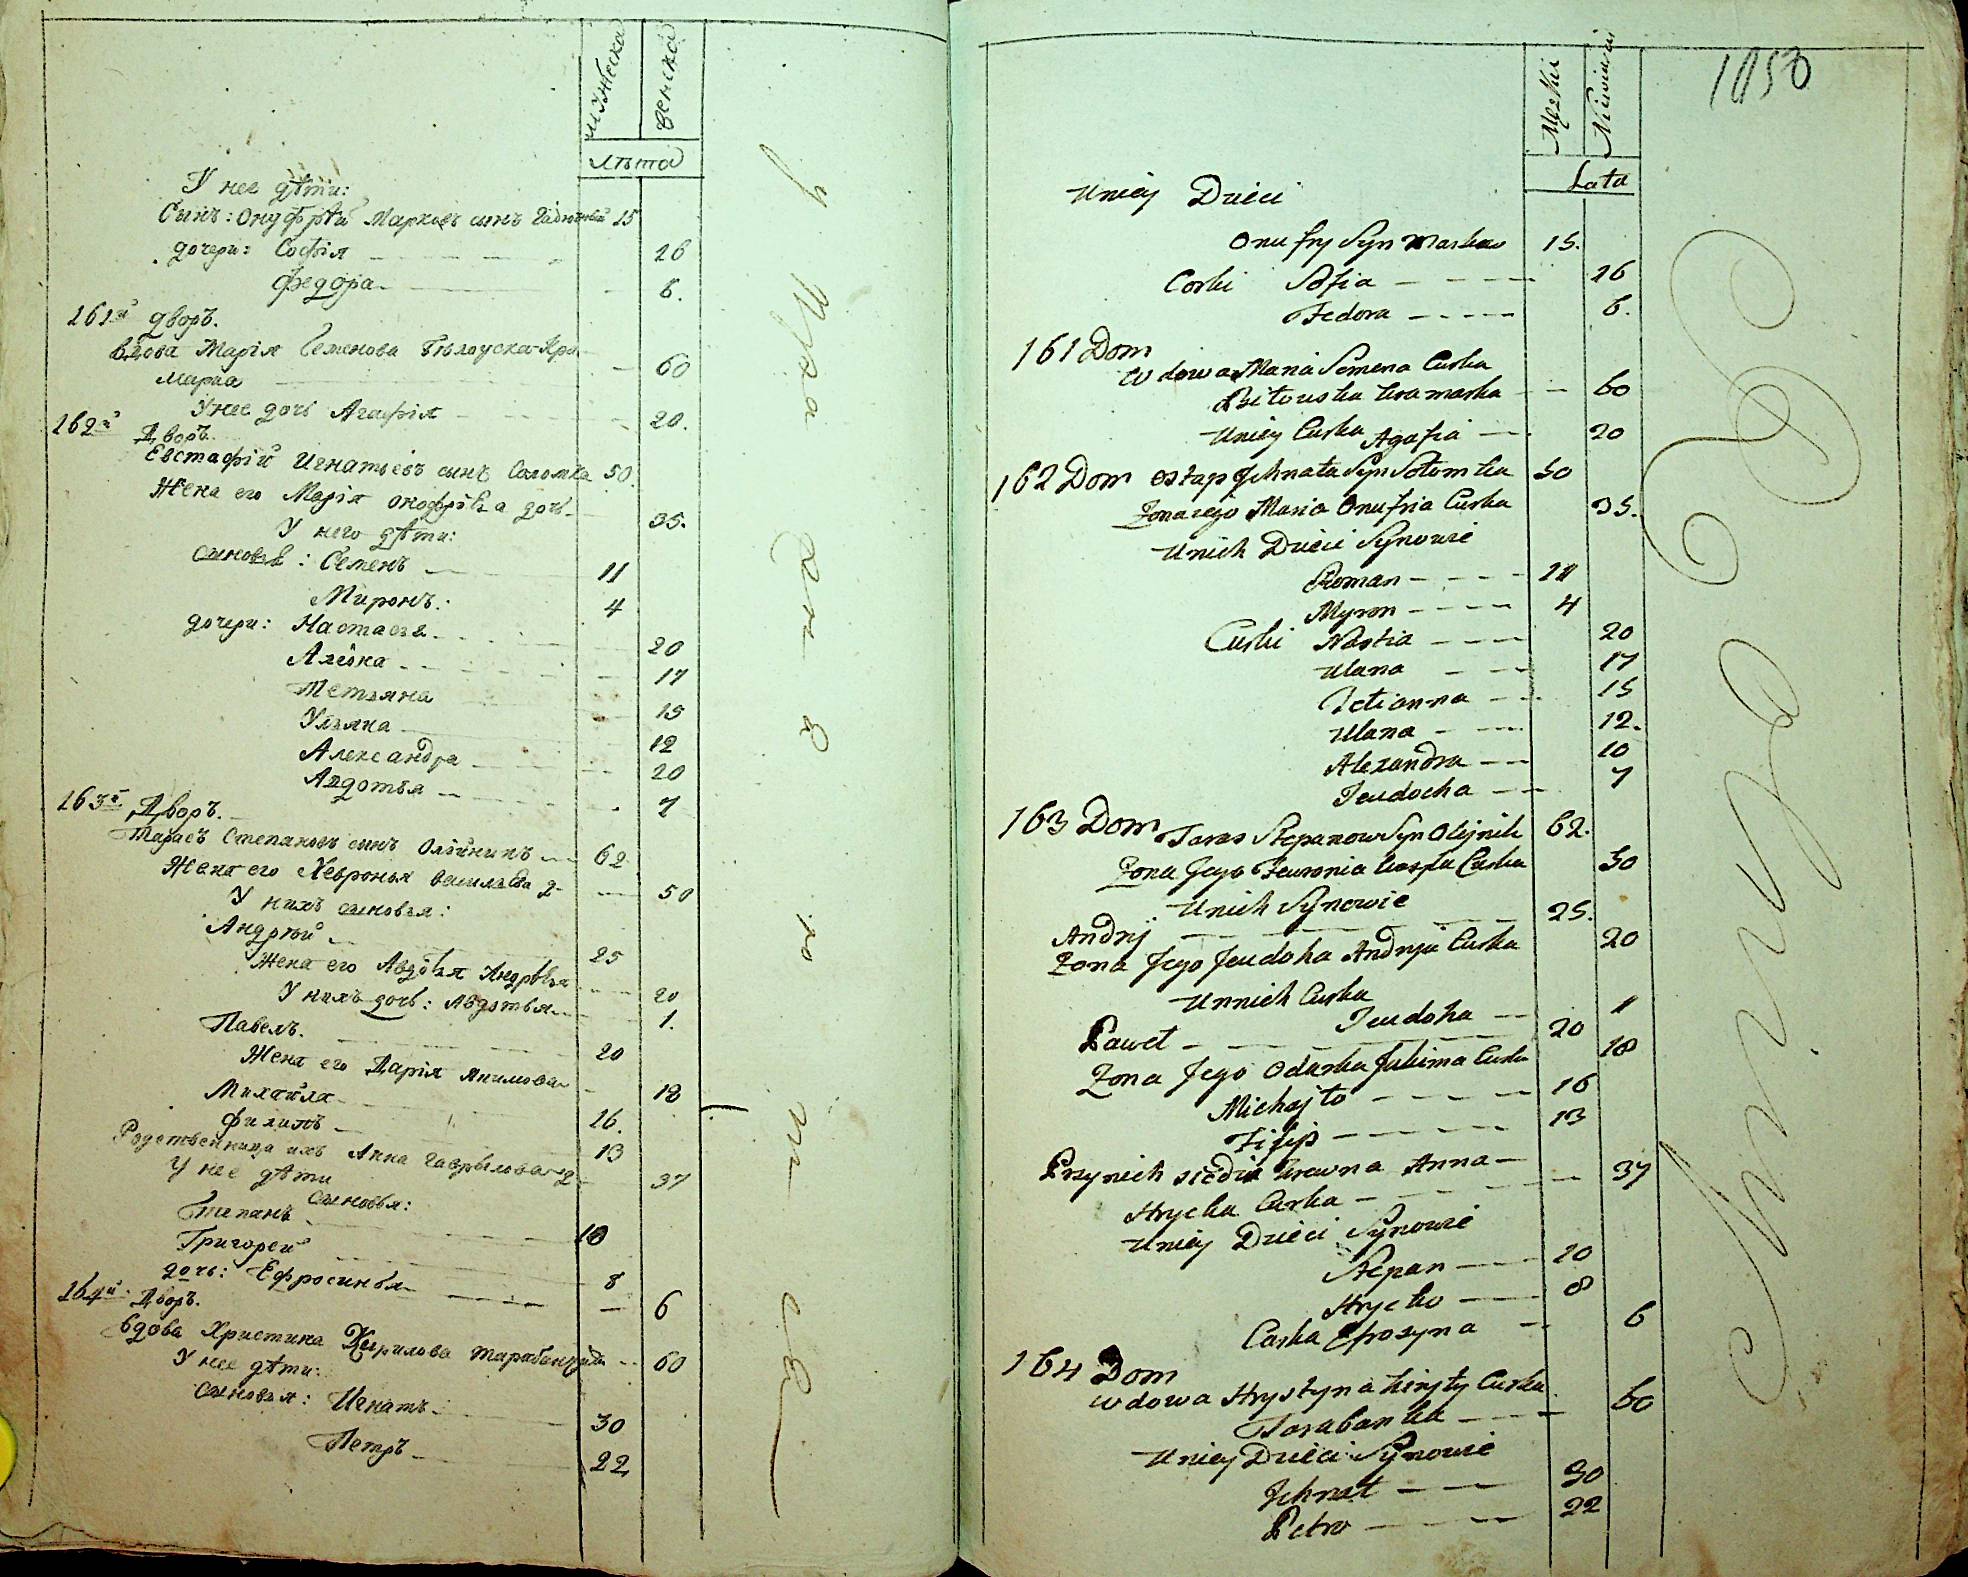 мужеска
женска
лѣта
У нее дѣти:
Сынъ: Онуфрѣй Марковъ сынъ 15
дочери: Софія 26
Федора 6.
161й дворъ.
вдова Марія Семенова Бѣлоуска Кра-
марка 60
У нее дочь Агафія 20.
162й Дворъ.
Евстафій Игнатьевъ сынъ Соломка 50.
Жена его Марія Онофрѣва дочь 35.
У него дѣти:
сыновья: Семенъ 11
Миронъ: 4
дочери: Настасья 20
Алёна 17
Тетьяна 15
Ульяна 12
Александра 20
Авдотья 7
163й Дворъ.
Тарасъ Степановъ сынъ Олѣйникъ 62
Жена его Хевронья Васильева д- 50
У нихъ сыновья:
Андрѣй 25
Жена его Авдотья Андрѣва 20
У нихъ дочь: Авдотья 1.
Павелъ. 20
Жена его Дарія Якимова 18
Михайла 16.
Филипъ 13
Родственница ихъ Анна Гаврылова д- 37
У нее дѣти
сыновья:
Степанъ 10
Григорей 8
дочь: Ефросинья 6
164й Дворъ.
Вдова Христина Кирилова 60
У нее дѣти:
сыновья: Игнатъ 30
Петръ 22
1850
Męzkie
Lata
Uniey Dzieci
Onufry Syn Marka 15.
Corki Sofia 26
Fedora 6.
161 Dom
Wdowa Maria Semena Curka
Biłouska Kramarka 60
Uniey Curka Agafia 20
162 Dom Ostap Jchnata Syn Sołomka 50
Zona iego Maria Onufria Curka 35.
Unich Dzieci Synowie
Roman 11
Myron 4
Curki Nastia 20
Ulana 17
Tetianna 15
Ulana 12.
Alexandra 10
Jeudocha 7
163 Dom Taras Stepanow Syn Olijnik 62.
Zona Jego Feuronia Wasyla Curka 50
Unich Synowie
Andrij 25.
Zona Jego Jeudoha Andryia Curka 20
Unnich Curka
Jeudoha 1
Paweł 20
Zona Jego Odarka Jakima Curka 18
Michajło 16
Filip 13
Przynich siedzi Krewna Anna
Hrycka Curka 37
Uniey Dzieci Synowie
Stepan 10
Hrycko 8
Curka Efrosyna 6
164 Dom
Wdowa Hrystyna Kiryły Curka
Tarabanka 60
Uniey Dzieci Synowie
Jchnat 30
Petro 22